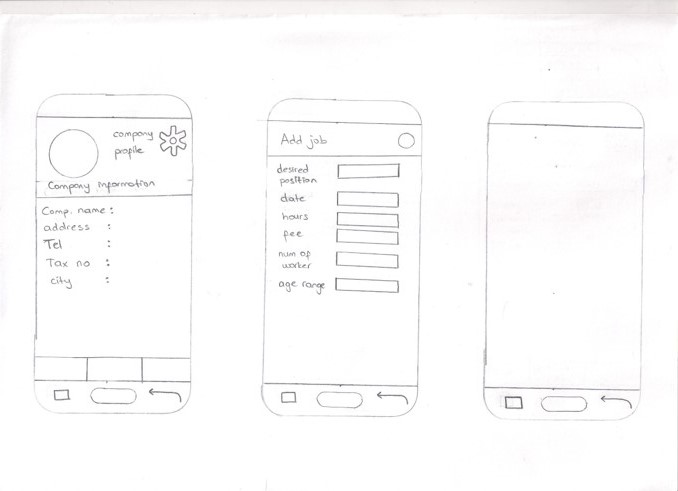 company
profile
Company information
Comp. name :
address :
Tel :
Tax no :
city :
Add job
desired
position
date
hours
fee
num of
worker
age range